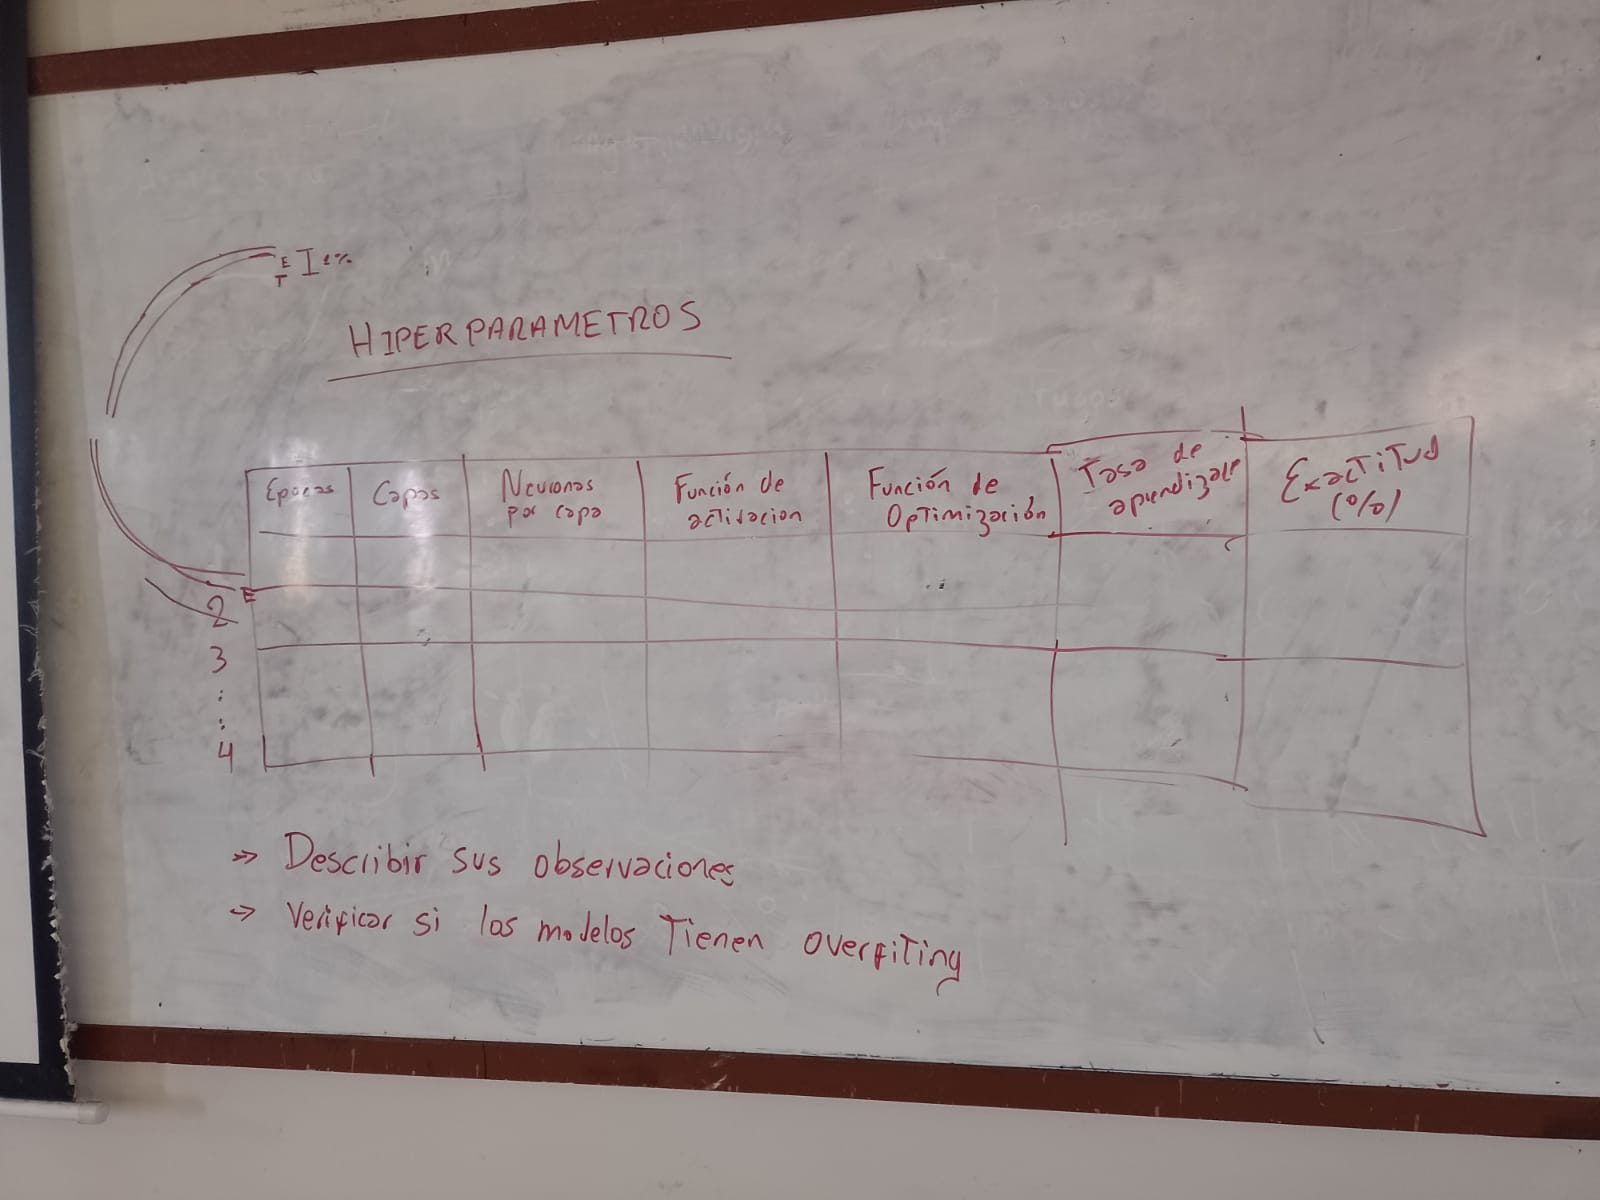 E
T I 1%
HIPERPARAMETROS
Epocas Capas Neuronas por capa Función de activacion Función de Optimización Tasa de aprendizaje Exactitud (%)
E
2
3
:
:
4
→ Describir sus observaciones
→ Verificar si los modelos Tienen overfiting